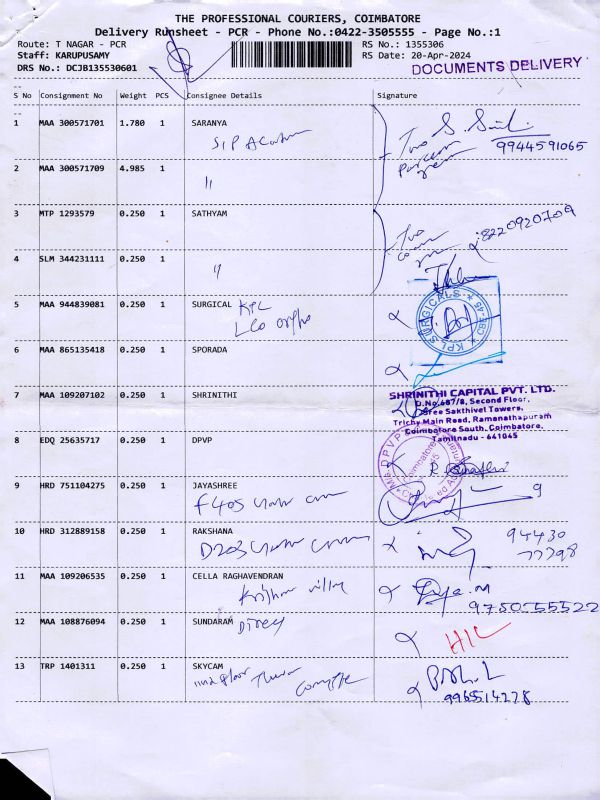 THE PROFESSIONAL COURIERS, COIMBATORE
Delivery Runsheet - PCR - Phone No.:0422-3505555 - Page No.:1
Route: T NAGAR - PCR RS No.: 1355306
Staff: KARUPUSAMY RS Date: 20-Apr-2024
DRS No.: DCJB135530601 DOCUMENTS DELIVERY
S No Consignment No Weight PCS Consignee Details Signature
1 MAA 300571701 1.780 1 SARANYA
9944591065
2 MAA 300571709 4.985 1
"
3 MTP 1293579 0.250 1 SATHYAM
8220920709
4 SLM 344231111 0.250 1
"
5 MAA 944839081 0.250 1 SURGICAL KPL
Leo ortho
* KPL SURGICALS * CBE-45
6 MAA 865135418 0.250 1 SPORADA
7 MAA 109207102 0.250 1 SHRINITHI
SHRINITHI CAPITAL PVT. LTD.
D.No.487/8, Second Floor,
Sree Sakthivel Towers,
Trichy Main Road, Ramanathapuram
Coimbatore South, Coimbatore,
Tamilnadu - 641045
8 EDQ 25635717 0.250 1 DPVP
9 HRD 751104275 0.250 1 JAYASHREE
F405
9
10 HRD 312889158 0.250 1 RAKSHANA
D203
94430
77798
11 MAA 109206535 0.250 1 CELLA RAGHAVENDRAN
9750555522
12 MAA 108876094 0.250 1 SUNDARAM
13 TRP 1401311 0.250 1 SKYCAM
IInd floor
9965514278